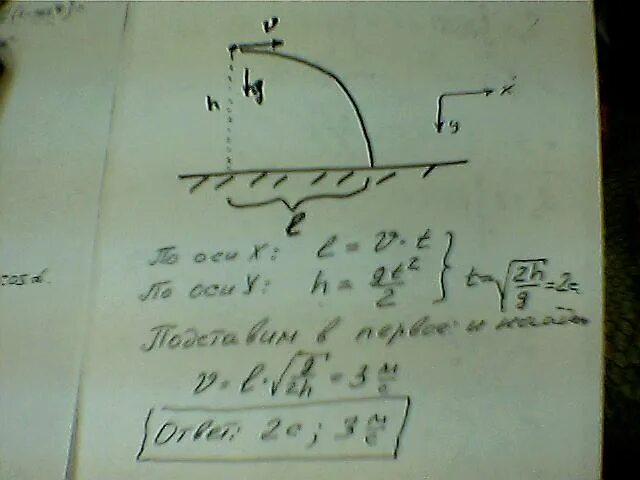 v
h g
x
y
l
По оси X: l = v · t
По оси Y: h = gt²/2 } t = √(2h/g) = 2с
Подставим в первое и
v = l · √(g/2h) = 3 м/с
Ответ: 2с ; 3 м/с
cosα.